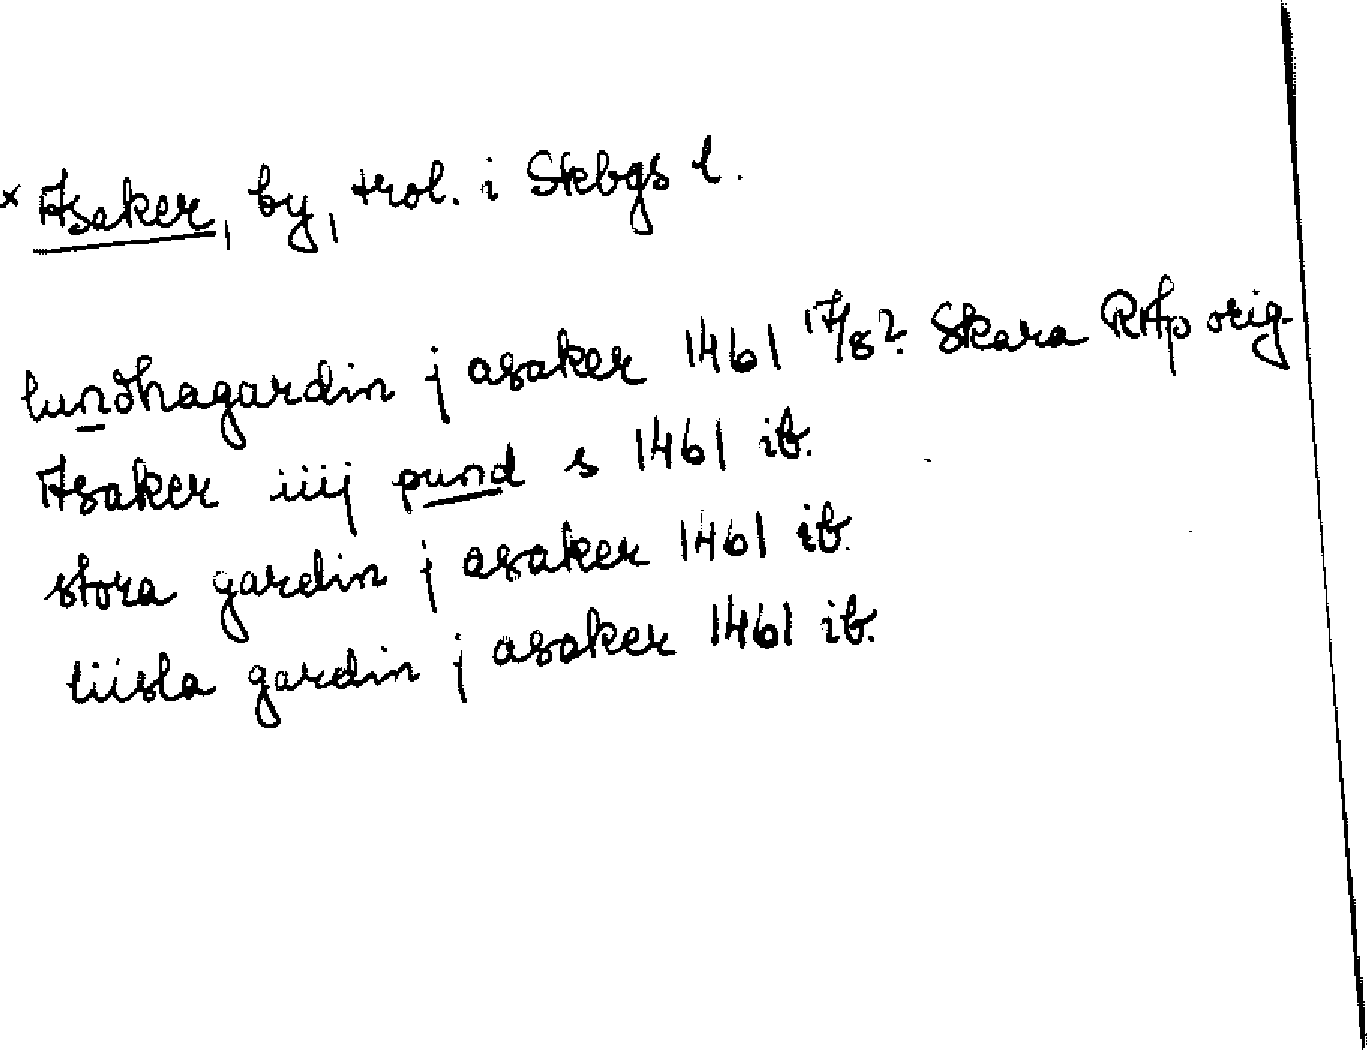 × Asaker, by, trol. i Skbgs l.
lundhagardin j asaker 1461 17/8? Skara RAp orig.
Asaker iiij pund s 1461 ib.
stora gardin j asaker 1461 ib.
liisla gardin j asaker 1461 ib.